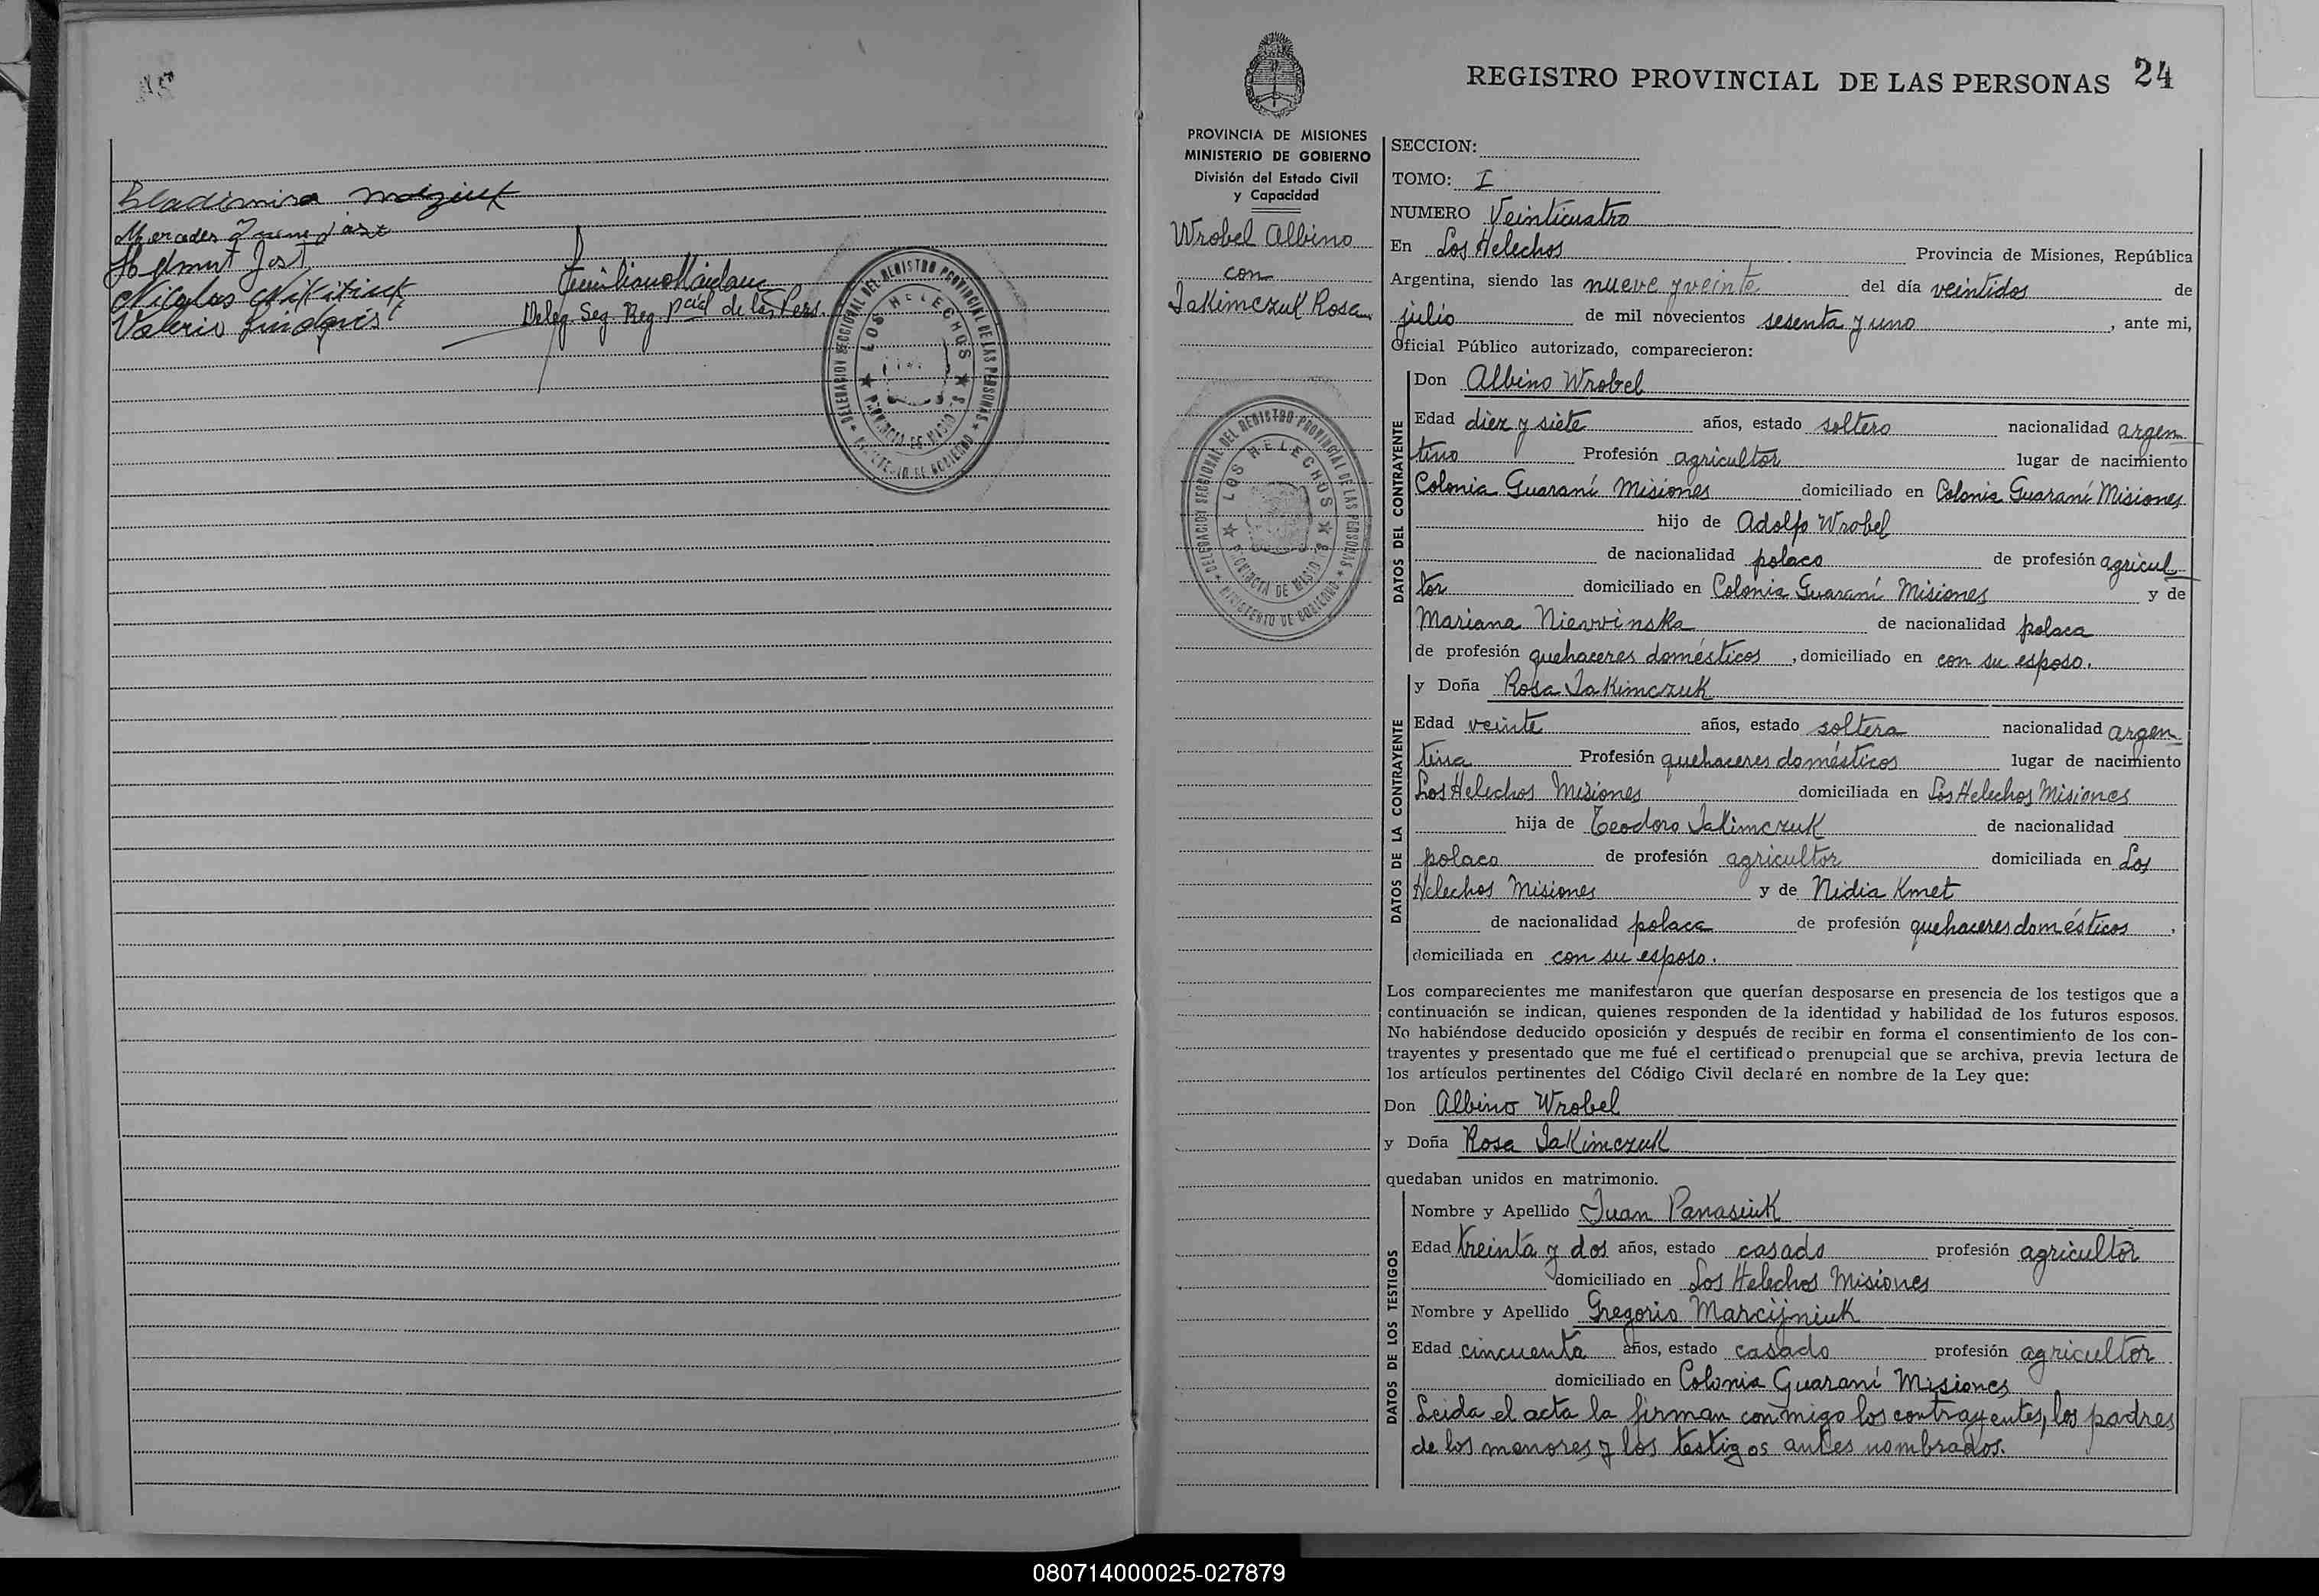 Bladimira
Mercedes
Helmut Jost
Nicolas Nikitiuk
Valerio
Deleg. Seg. Reg. Pcial de las Pers.
DELEGACION SECCIONAL DEL REGISTRO PROVINCIAL DE LAS PERSONAS
LOS HELECHOS
PROVINCIA DE MISIONES
MINISTERIO DE GOBIERNO
REGISTRO PROVINCIAL DE LAS PERSONAS 24
PROVINCIA DE MISIONES
MINISTERIO DE GOBIERNO
División del Estado Civil
y Capacidad
Wrobel Albino
con
Jakimczuk Rosa
DELEGACION SECCIONAL DEL REGISTRO PROVINCIAL DE LAS PERSONAS
LOS HELECHOS
PROVINCIA DE MISIONES
MINISTERIO DE GOBIERNO
SECCION:
TOMO: I
NUMERO Veinticuatro
En Los Helechos Provincia de Misiones, República
Argentina, siendo las nueve y veinte del día veintidos de
julio de mil novecientos sesenta y uno, ante mi,
Oficial Público autorizado, comparecieron:
DATOS DEL CONTRAYENTE
Don Albino Wrobel
Edad diez y siete años, estado soltero nacionalidad argen
tino Profesión agricultor lugar de nacimiento
Colonia Guaraní Misiones domiciliado en Colonia Guaraní Misiones
hijo de Adolfo Wrobel
de nacionalidad polaco de profesión agricul
tor domiciliado en Colonia Guaraní Misiones y de
Mariana Niewinska de nacionalidad polaca
de profesión quehaceres domésticos, domiciliado en con su esposo.
DATOS DE LA CONTRAYENTE
y Doña Rosa Jakimczuk
Edad veinte años, estado soltera nacionalidad argen
tina Profesión quehaceres domésticos lugar de nacimiento
Los Helechos Misiones domiciliada en Los Helechos Misiones
hija de Teodoro Jakimczuk de nacionalidad
polaco de profesión agricultor domiciliada en Los
Helechos Misiones y de Nidia Kmet
de nacionalidad polaca de profesión quehaceres domésticos,
domiciliada en con su esposo.
Los comparecientes me manifestaron que querían desposarse en presencia de los testigos que a
continuación se indican, quienes responden de la identidad y habilidad de los futuros esposos.
No habiéndose deducido oposición y después de recibir en forma el consentimiento de los con-
trayentes y presentado que me fué el certificado prenupcial que se archiva, previa lectura de
los artículos pertinentes del Código Civil declaré en nombre de la Ley que:
Don Albino Wrobel
y Doña Rosa Jakimczuk
quedaban unidos en matrimonio.
DATOS DE LOS TESTIGOS
Nombre y Apellido Juan Panasiuk
Edad treinta y dos años, estado casado profesión agricultor
domiciliado en Los Helechos Misiones
Nombre y Apellido Gregorio Marcijniuk
Edad cincuenta años, estado casado profesión agricultor
domiciliado en Colonia Guaraní Misiones
Leida el acta la firman conmigo los contrayentes, los padres
de los menores y los testigos antes nombrados.
080714000025-027879